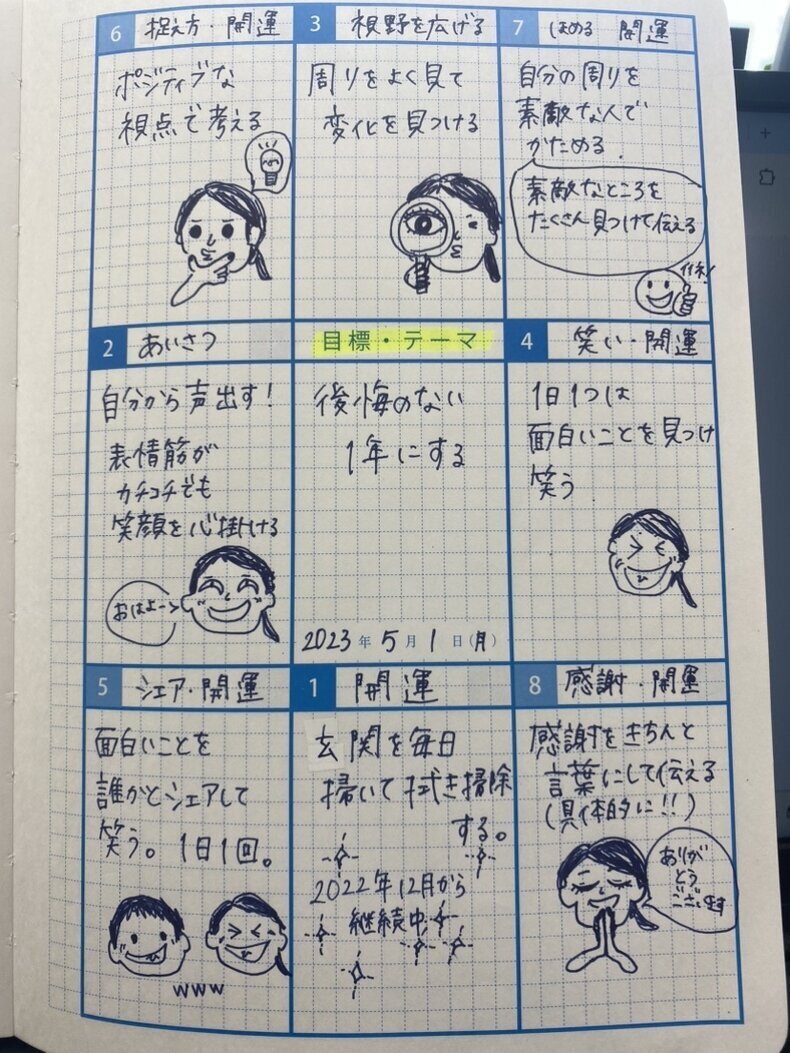 6 捉え方・開運
ポジティブな
視点で考える
3 視野を広げる
周りをよく見て
変化を見つける
7 ほめる 開運
自分の周りを
素敵な人で
かためる.
素敵なところを
たくさん見つけて伝える
イイネ!
2 あいさつ
自分から声出す!
表情筋が
カチコチでも
笑顔を心掛ける
おはよー
目標・テーマ
後悔のない
1年にする
2023年 5月 1日(月)
4 笑い・開運
1日1つは
面白いことを見つけ
笑う
5 シェア・開運
面白いことを
誰かとシェアして
笑う。1日1回。
www
1 開運
玄関を毎日
掃いて拭き掃除
する。
2022年12月から
継続中
8 感謝・開運
感謝をきちんと
言葉にして伝える
(具体的に!!)
ありが
とう
ございます